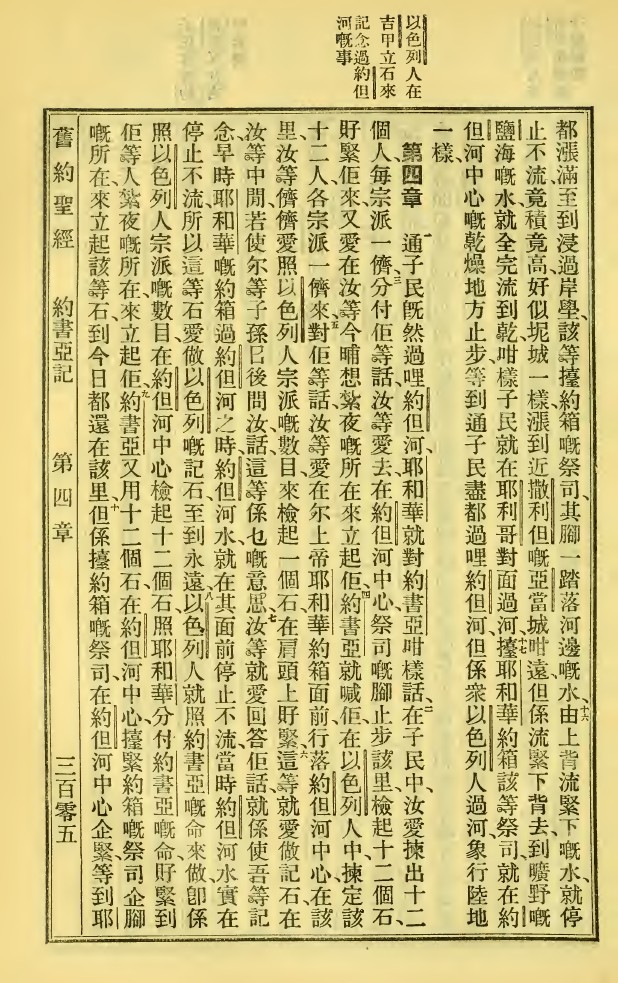 以色列人在
吉甲立石來
記念過約但
河嘅事
都漲滿至到浸過岸壆、該等擡約箱嘅祭司、其腳一踏落河邊嘅水、十六由上背流緊下嘅水、就停
止不流、竟積竟高、好似坭城一樣、漲到近撒利但嘅亞當城咁遠、但係流緊下背去、到曠野嘅
鹽海嘅水、就全完流到乾、咁樣子民就在耶利哥對面過河、十七擡耶和華約箱該等祭司、就在約
但河中心嘅乾燥地方止步、等到通子民盡都過哩約但河、但係衆以色列人過河象行陸地
一樣、
第四章 一通子民旣然過哩約但河、耶和華就對約書亞咁樣話、二在子民中、汝愛揀出十二
個人、每宗派一儕、三分付佢等話、汝等愛去在約但河中心、祭司嘅腳止步該里、檢起十二個石、
好緊佢來、又愛在汝等今晡想紮夜嘅所在、來立起佢、四約書亞就喊佢在以色列人中、揀定該
十二人、各宗派一儕來、五對佢等話、汝等愛在尔上帝耶和華約箱面前、行落約但河中心、在該
里、汝等儕儕愛照以色列人宗派嘅數目、來檢起一個石、在肩頭上好緊、六這等就愛做記石、在
汝等中間、若使尔等子孫日後問汝話、這等係乜嘅意思、七汝等就愛回答佢話、就係使吾等記
念早時耶和華嘅約箱過約但河之時、約但河水就在其面前停止不流、當時約但河水實在
停止不流、所以這等石愛做以色列嘅記石、至到永遠、八以色列人就照約書亞嘅命來做、卽係
照以色列人宗派嘅數目、在約但河中心、檢起十二個石、照耶和華分付約書亞嘅命、好緊到
佢等人紮夜嘅所在、來立起佢、九約書亞又用十二個石、在約但河中心、擡緊約箱嘅祭司企腳
嘅所在、來立起該等石、到今日都還在該里、十但係擡約箱嘅祭司、在約但河中心企緊、等到耶
舊約聖經 約書亞記 第四章 三百零五